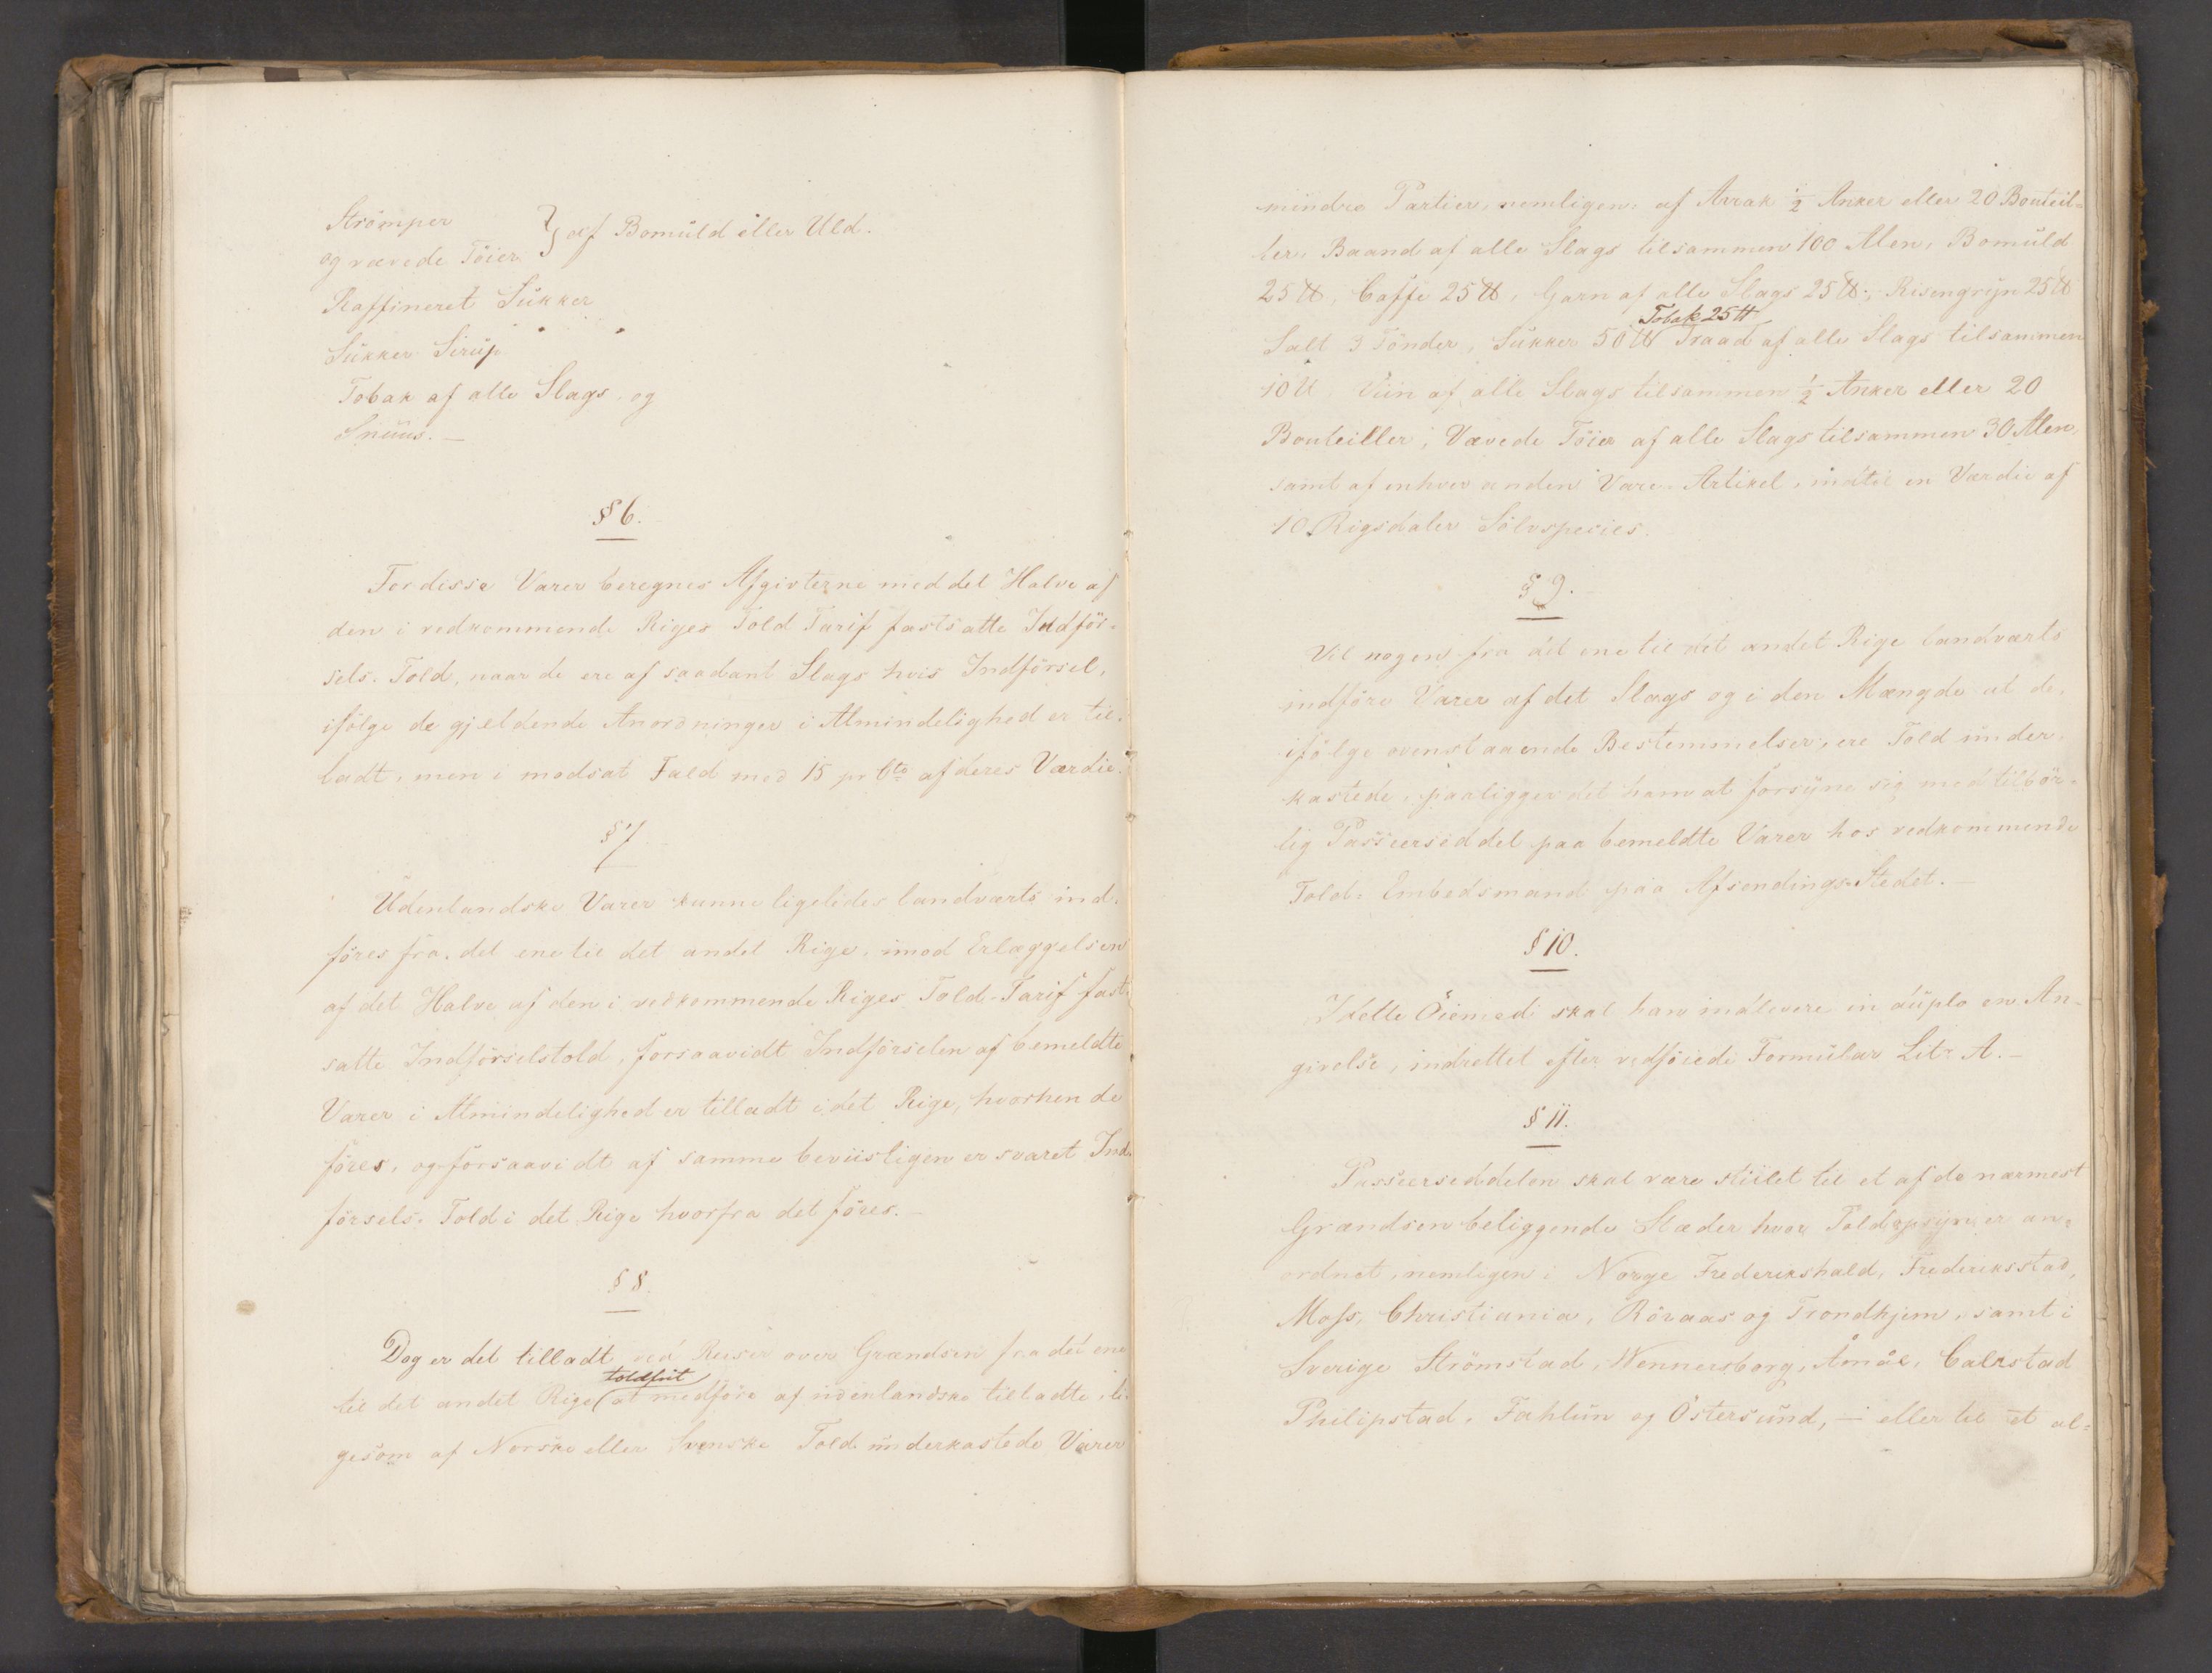 Strömper
og vævede Töier } af Bomuld eller Uld.
Raffineret Sukker
Sukker Sirup
Tobak af alle Slags, og
Snuus. —
§ 6.
For disse Varer beregnes Afgivterne med det Halve af
den i vedkommende Riges Told Tarif fastsatte Indför-
sels-Told, naar de ere af saadant Slags hvis Indförsel,
ifölge de gjeldende Anordninger i Almindelighed er til-
ladt, men i modsat Fald med 15 pr Cto af deres Værdie.
§ 7
Udenlandske Varer kunne ligeledes landværts ind-
föres fra det ene til det andet Rige, imod Erlæggelsen
af det Halve af den i vedkommende Riges Told-Tarif fast-
satte Indförselstold, forsaavidt Indförselen af bemeldte
Varer i Almindelighed er tilladt i det Rige, hvorhen de
föres, og forsaavidt af samme beviisligen er svaret Ind-
försels-Told i det Rige hvorfra det föres. —
§ 8.
Dog er det tilladt ved Reiser over Grændsen fra det ene
til det andet Rige toldfrit at medföre af udenlandske tilladte, li-
gesom af Norske eller Svenske Told underkastede Varer
mindre Partier, nemligen: af Arrak ½ Anker eller 20 Bouteil-
ler, Baand af alle Slags tilsammen 100 Alen, Bomuld
25 ℔, Caffe 25 ℔, Garn af alle Slags 25 ℔, Risengryn 25 ℔
Salt 3 Tönder, Sukker 50 ℔ Tobak 25 ℔ Traad af alle Slags tilsammen
10 ℔ Viin af alle Slags tilsammen ½ Anker eller 20
Bouteiller, Vævede Töier af alle Slags tilsammen 30 Alen,
samt af enhver anden Vare-Artikel, indtil en Værdie af
10 Rigsdaler Sölvspecies.
§ 9.
Vil nogen fra det ene til det andet Rige landværts
indföre Varer af det Slags og i den Mængde at de,
ifölge ovenstaaende Bestemmelser, ere Told under-
kastede, paaligger det ham at forsyne sig med tilbör-
lig Passeerseddel paa bemeldte Varer hos vedkommende
Told-Embedsmand paa Afsendings-Stedet. —
§ 10.
I dette Öiemed skal han indlevere in duplo en An-
givelse, indrettet efter vedföiede Formular Litr A. —
§ 11.
Passeerseddelen skal være stiilet til et af de nærmest
Grændsen beliggende Stæder hvor Toldopsyn er an-
ordnet, nemligen i Norge Frederikshald, Frederiksstad,
Moss, Christiania, Röraas og Trondhjem, samt i
Sverige Strömstad, Wennersborg, Åmål, Carlstad
Philipstad, Fahlun og Östersund, — eller til et al-